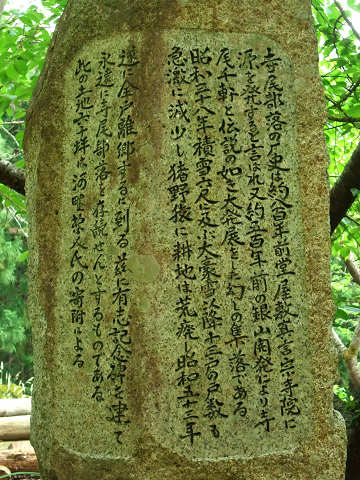 寺尾部落の歴史は約八百年前堂屋敷真言宗寺院に
源を発すると言われ又約五百年前の銀山開発により寺
尾千軒と伝説の如き大発展をした幻の集落である
昭和三十八年積雪六尺に及ぶ大豪雪以降十三戸の戸数も
急激に減少し猪野猿に耕地は荒廃し昭和五十三年
遂に全戸離郷するに到る 茲に有志記念碑を建て
永遠に寺尾部落を存続せんとするものである
此の土地六十坪は河野 氏の寄附による